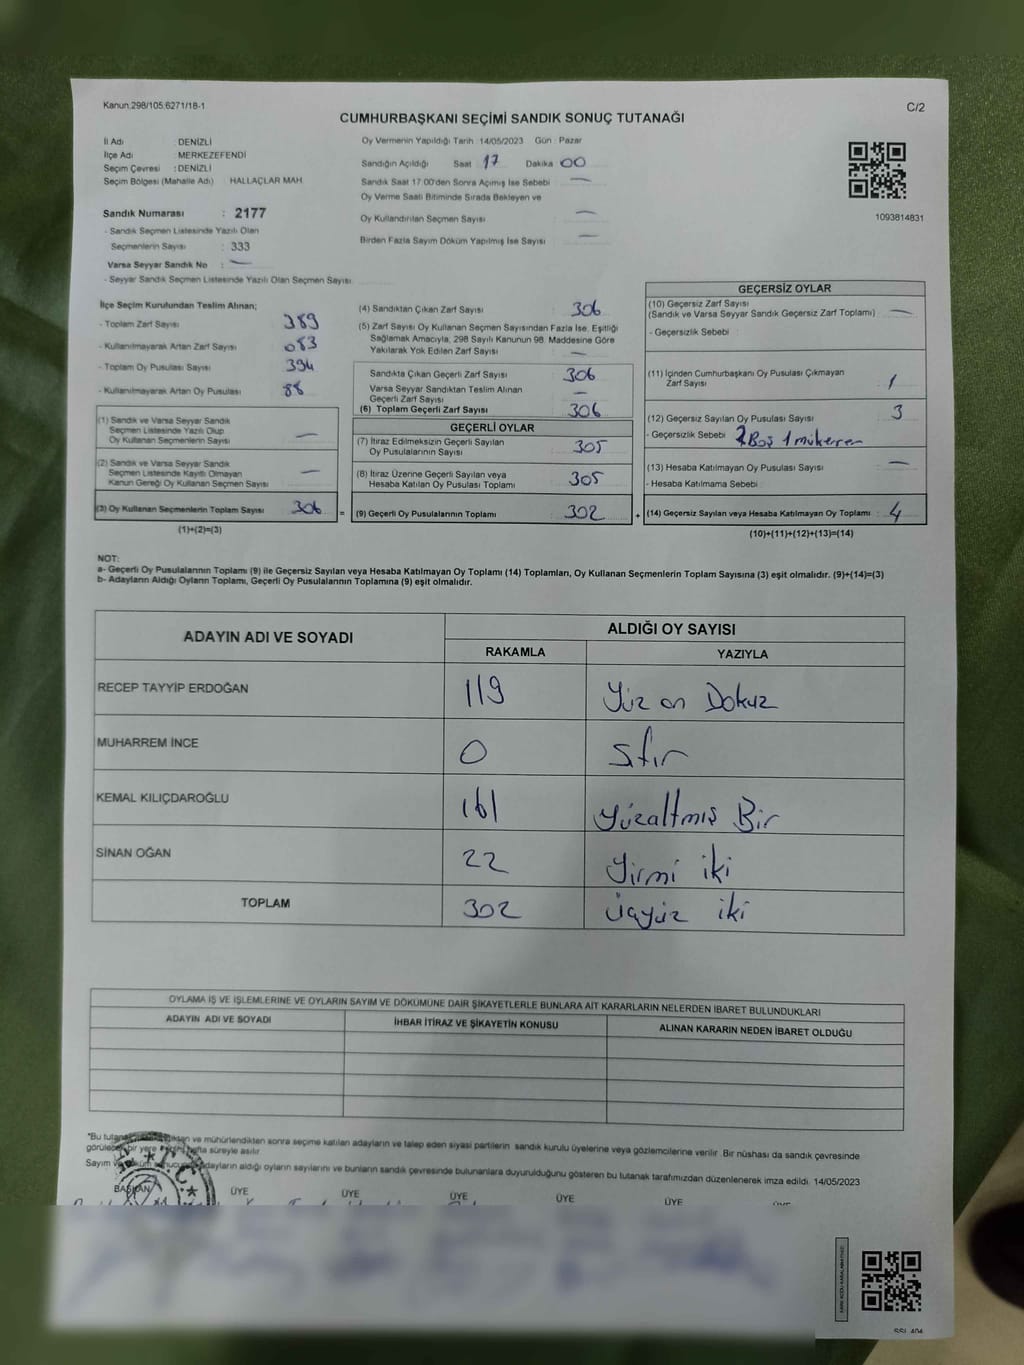 Kanun.298/105.6271/18-1
C/2
CUMHURBAŞKANI SEÇİMİ SANDIK SONUÇ TUTANAĞI
İl Adı : DENİZLİ
İlçe Adı : MERKEZEFENDİ
Seçim Çevresi : DENİZLİ
Seçim Bölgesi (Mahalle Adı) : HALLAÇLAR MAH
Sandık Numarası : 2177
- Sandık Seçmen Listesinde Yazılı Olan
Seçmenlerin Sayısı : 333
Varsa Seyyar Sandık No : —
- Seyyar Sandık Seçmen Listesinde Yazılı Olan Seçmen Sayısı
Oy Vermenin Yapıldığı Tarih 14/05/2023 Gün : Pazar
Sandığın Açıldığı Saat 17 Dakika 00
Sandık Saat 17:00'den Sonra Açımış İse Sebebi —
Oy Verme Saati Bitiminde Sırada Bekleyen ve
Oy Kullandırılan Seçmen Sayısı —
Birden Fazla Sayım Döküm Yapılmış İse Sayısı —
1093814831
İlçe Seçim Kurulundan Teslim Alınan;
- Toplam Zarf Sayısı 389
- Kullanılmayarak Artan Zarf Sayısı 083
- Toplam Oy Pusulası Sayısı 394
- Kullanılmayarak Artan Oy Pusulası 88
(1) Sandık ve Varsa Seyyar Sandık
Seçmen Listesinde Yazılı Olup
Oy Kullanan Seçmenlerin Sayısı —
(2) Sandık ve Varsa Seyyar Sandık
Seçmen Listesinde Kayıtlı Olmayan
Kanun Gereği Oy Kullanan Seçmen Sayısı —
(3) Oy Kullanan Seçmenlerin Toplam Sayısı 306
(1)+(2)=(3)
(4) Sandıktan Çıkan Zarf Sayısı : 306
(5) Zarf Sayısı Oy Kullanan Seçmen Sayısından Fazla İse, Eşitliği
Sağlamak Amacıyla, 298 Sayılı Kanunun 98. Maddesine Göre
Yakılarak Yok Edilen Zarf Sayısı —
Sandıkta Çıkan Geçerli Zarf Sayısı : 306
Varsa Seyyar Sandıktan Teslim Alınan
Geçerli Zarf Sayısı —
(6) Toplam Geçerli Zarf Sayısı : 306
GEÇERLİ OYLAR
(7) İtiraz Edilmeksizin Geçerli Sayılan
Oy Pusulalarının Sayısı : 305
(8) İtiraz Üzerine Geçerli Sayılan veya
Hesaba Katılan Oy Pusulası Toplamı 305
= (9) Geçerli Oy Pusulalarının Toplamı 302 +
GEÇERSİZ OYLAR
(10) Geçersiz Zarf Sayısı
(Sandık ve Varsa Seyyar Sandık Geçersiz Zarf Toplamı) —
- Geçersizlik Sebebi :
(11) İçinden Cumhurbaşkanı Oy Pusulası Çıkmayan
Zarf Sayısı 1
(12) Geçersiz Sayılan Oy Pusulası Sayısı : 3
- Geçersizlik Sebebi 2 Boş 1 mükerrer
(13) Hesaba Katılmayan Oy Pusulası Sayısı : —
- Hesaba Katılmama Sebebi :
(14) Geçersiz Sayılan veya Hesaba Katılmayan Oy Toplamı : 4
(10)+(11)+(12)+(13)=(14)
NOT:
a- Geçerli Oy Pusulalarının Toplamı (9) ile Geçersiz Sayılan veya Hesaba Katılmayan Oy Toplamı (14) Toplamları, Oy Kullanan Seçmenlerin Toplam Sayısına (3) eşit olmalıdır. (9)+(14)=(3)
b- Adayların Aldığı Oyların Toplamı, Geçerli Oy Pusulalarının Toplamına (9) eşit olmalıdır.
ADAYIN ADI VE SOYADI ALDIĞI OY SAYISI
RAKAMLA YAZIYLA
RECEP TAYYİP ERDOĞAN 119 Yüz on Dokuz
MUHARREM İNCE 0 Sıfır
KEMAL KILIÇDAROĞLU 161 yüzaltmış Bir
SİNAN OĞAN 22 Yirmi iki
TOPLAM 302 üçyüz iki
OYLAMA İŞ VE İŞLEMLERİNE VE OYLARIN SAYIM VE DÖKÜMÜNE DAİR ŞİKAYETLERLE BUNLARA AİT KARARLARIN NELERDEN İBARET BULUNDUKLARI
ADAYIN ADI VE SOYADI İHBAR İTİRAZ VE ŞİKAYETİN KONUSU ALINAN KARARIN NEDEN İBARET OLDUĞU
"Bu ve mühürlendikten sonra seçime katılan adayların ve talep eden siyasi partilerin sandık kurulu üyelerine veya gözlemcilerine verilir. Bir nüshası da sandık çevresinde
görülecek bir yere hafta süreyle asılır.
Sayım ve adayların aldığı oyların sayılarını ve bunların sandık çevresinde bulunanlara duyurulduğunu gösteren bu tutanak tarafımızdan düzenlenerek imza edildi. 14/05/2023
BAŞKAN ÜYE ÜYE ÜYE ÜYE ÜYE